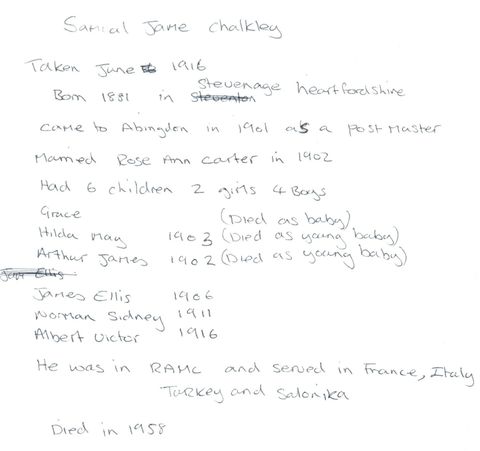 Samual Jame Chalkley
Taken June 1916
Born 1881 in Stevenage heartfordshire
came to Abingdon in 1901 as a post Master
Married Rose Ann Carter in 1902
Had 6 children 2 girls 4 Boys
Grace (Died as baby)
Hilda May 1903 (Died as young baby)
Arthur James 1902 (Died as young baby)
James Ellis 1906
Norman Sidney 1911
Albert Victor 1916
He was in RAMC and served in France, Italy
Turkey and Salonika
Died in 1958